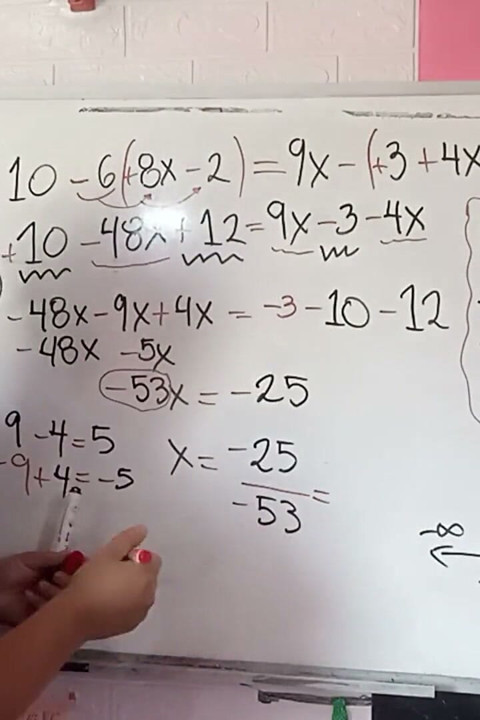 10 - 6(+8x - 2) = 9x - (+3 + 4x
+10 - 48x + 12 = 9x - 3 - 4x
-48x - 9x + 4x = -3 - 10 - 12
-48x - 5x
-53x = -25
9 - 4 = 5
-9 + 4 = -5
x = -25 / -53 =
-∞